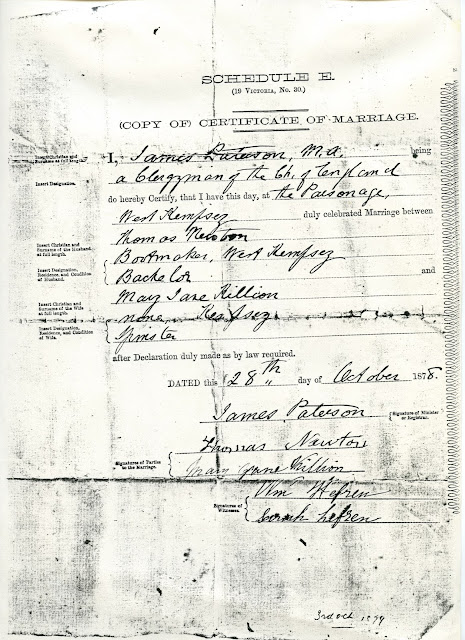 SCHEDULE E.
(19 Victoria, No. 30.)
(COPY OF) CERTIFICATE OF MARRIAGE.
Insert Christian and Surname at full length.
I, James Paterson, M.A. being
Insert Designation.
a Clergyman of the Ch. of England
do hereby Certify, that I have this day, at the Parsonage,
West Kempsey duly celebrated Marriage between
Insert Christian and Surname of the Husband at full length.
Thomas Newton
Insert Designation, Residence, and Condition of Husband.
Bootmaker, West Kempsey
Bachelor and
Insert Christian and Surname of the Wife at full length.
Mary Jane Killion
Insert Designation, Residence, and Condition of Wife.
none, Kempsey
Spinster
after Declaration duly made as by law required.
DATED this 28th day of October 1878.
James Paterson
Signature of Minister or Registrar.
Signatures of Parties to the Marriage.
Thomas Newton
Mary Jane Killion
Signatures of Witnesses.
Wm Hefren
Sarah Hefren
3rd Oct 1879